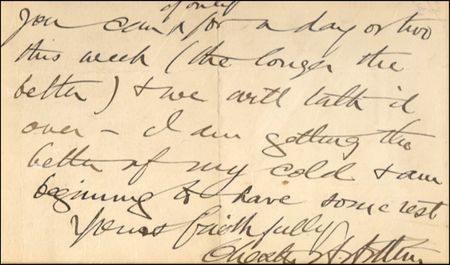 if only
you can & for a day or two
this week (the longer the
better) & we will talk it
over – I am getting the
better of my cold & am
beginning to have some rest
Yours faithfully
Chester A. Arthur